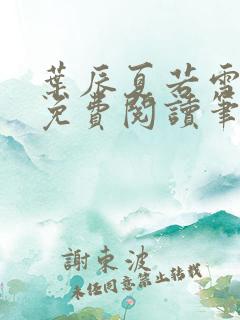 葉辰夏若雪
免費閱讀筆
謝東波
未經同意禁止轉載